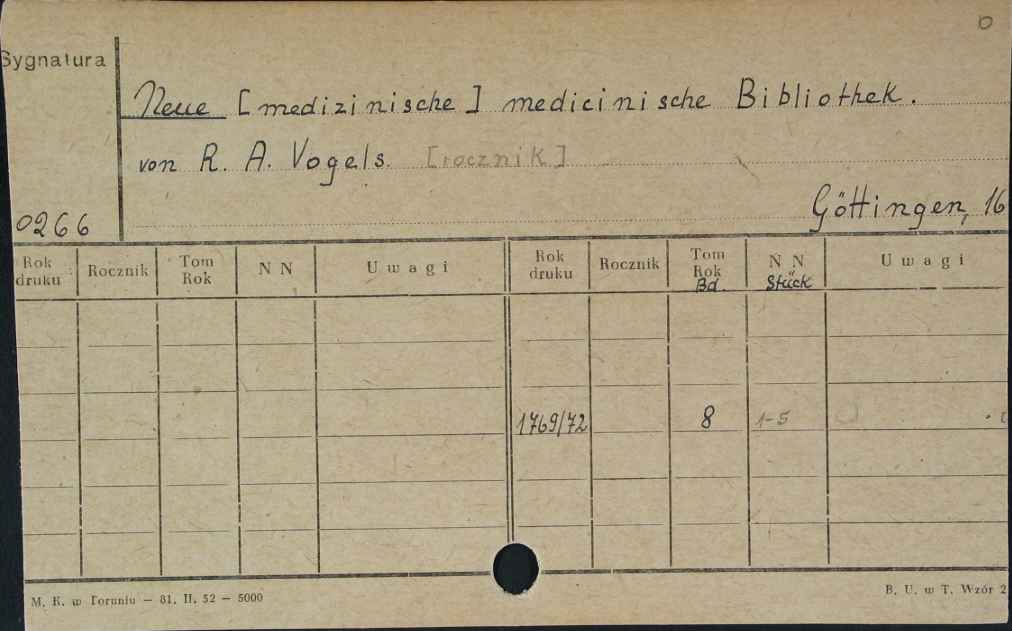 0
Sygnatura
Neue [medizinische] medicinische Bibliothek.
von R. A. Vogels. [rocznik]
Göttingen, 16
0266
Rok druku Rocznik Tom Rok N N Uwagi Rok druku Rocznik Tom Rok Bd. N N Stück Uwagi
1769/72 8 1-5
M. K. w Toruniu — 81. II. 52 — 5000
B. U. w T. Wzór 2